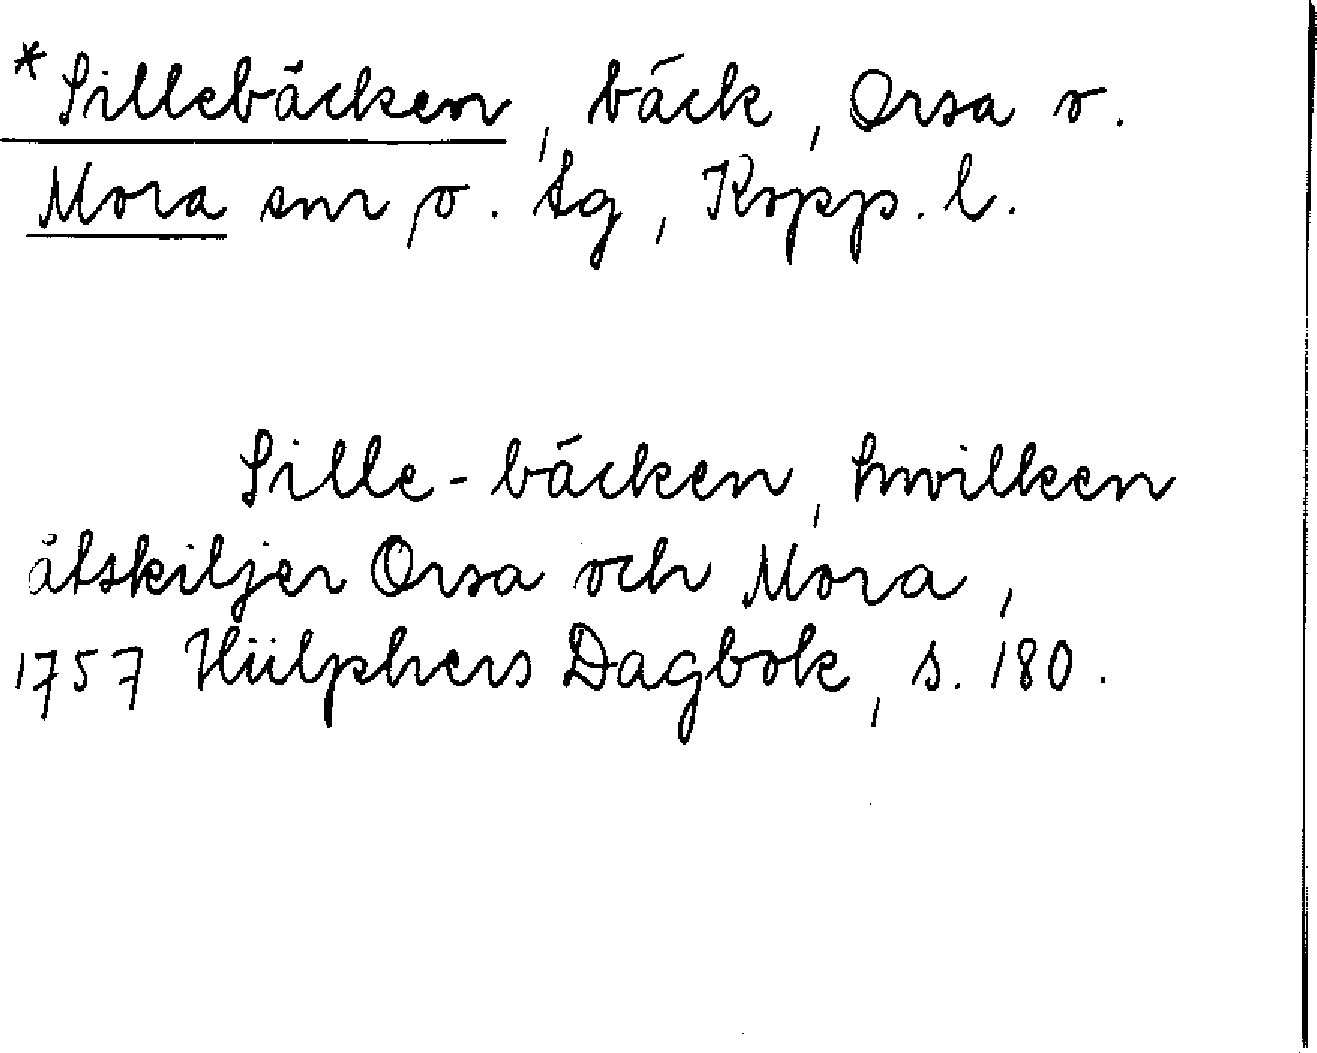 *Sillebäcken, bäck, Orsa o.
Mora snr, o. tg, Kopp. l.
Sille-bäcken, hwilken
åtskiljer Orsa och Mora,
1757 Hülphers Dagbok, s. 180.